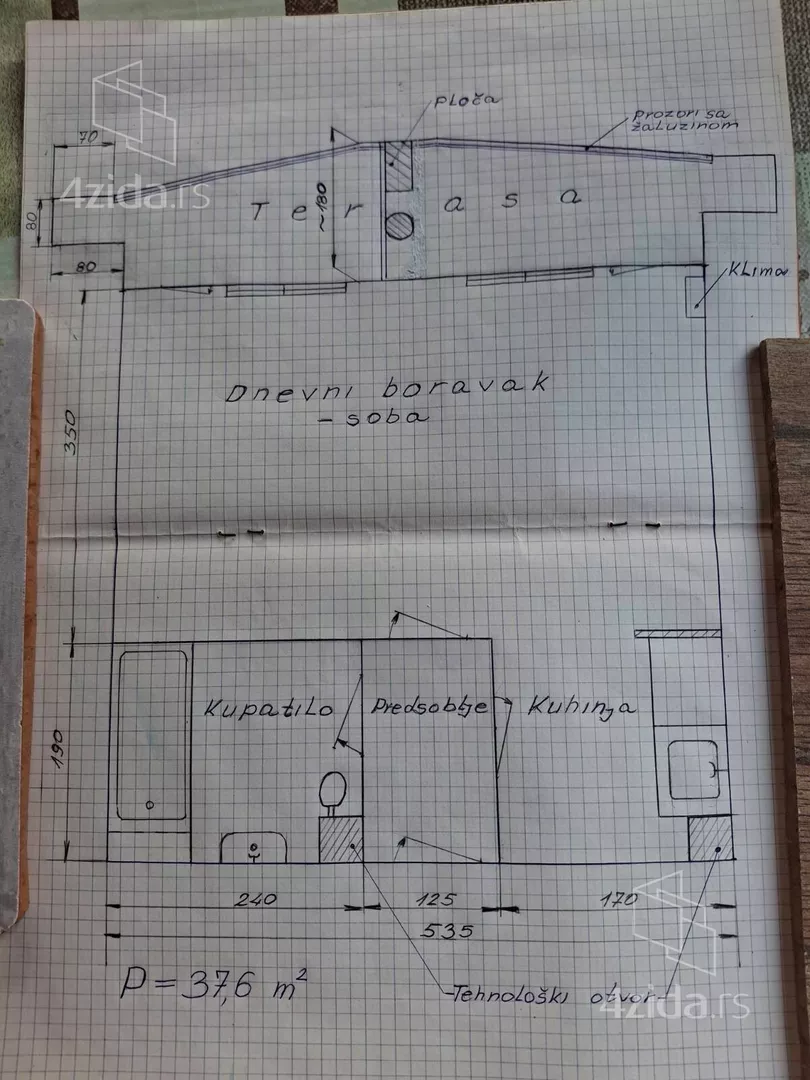 Ploča
Prozori sa
žaluzinom
70
4zida.rs
Terasa
~180
80
80
Klima
Dnevni boravak
- soba
350
Kupatilo
Predsoblje
Kuhinja
190
240
125
170
535
P = 37,6 m²
Tehnološki otvor
4zida.rs